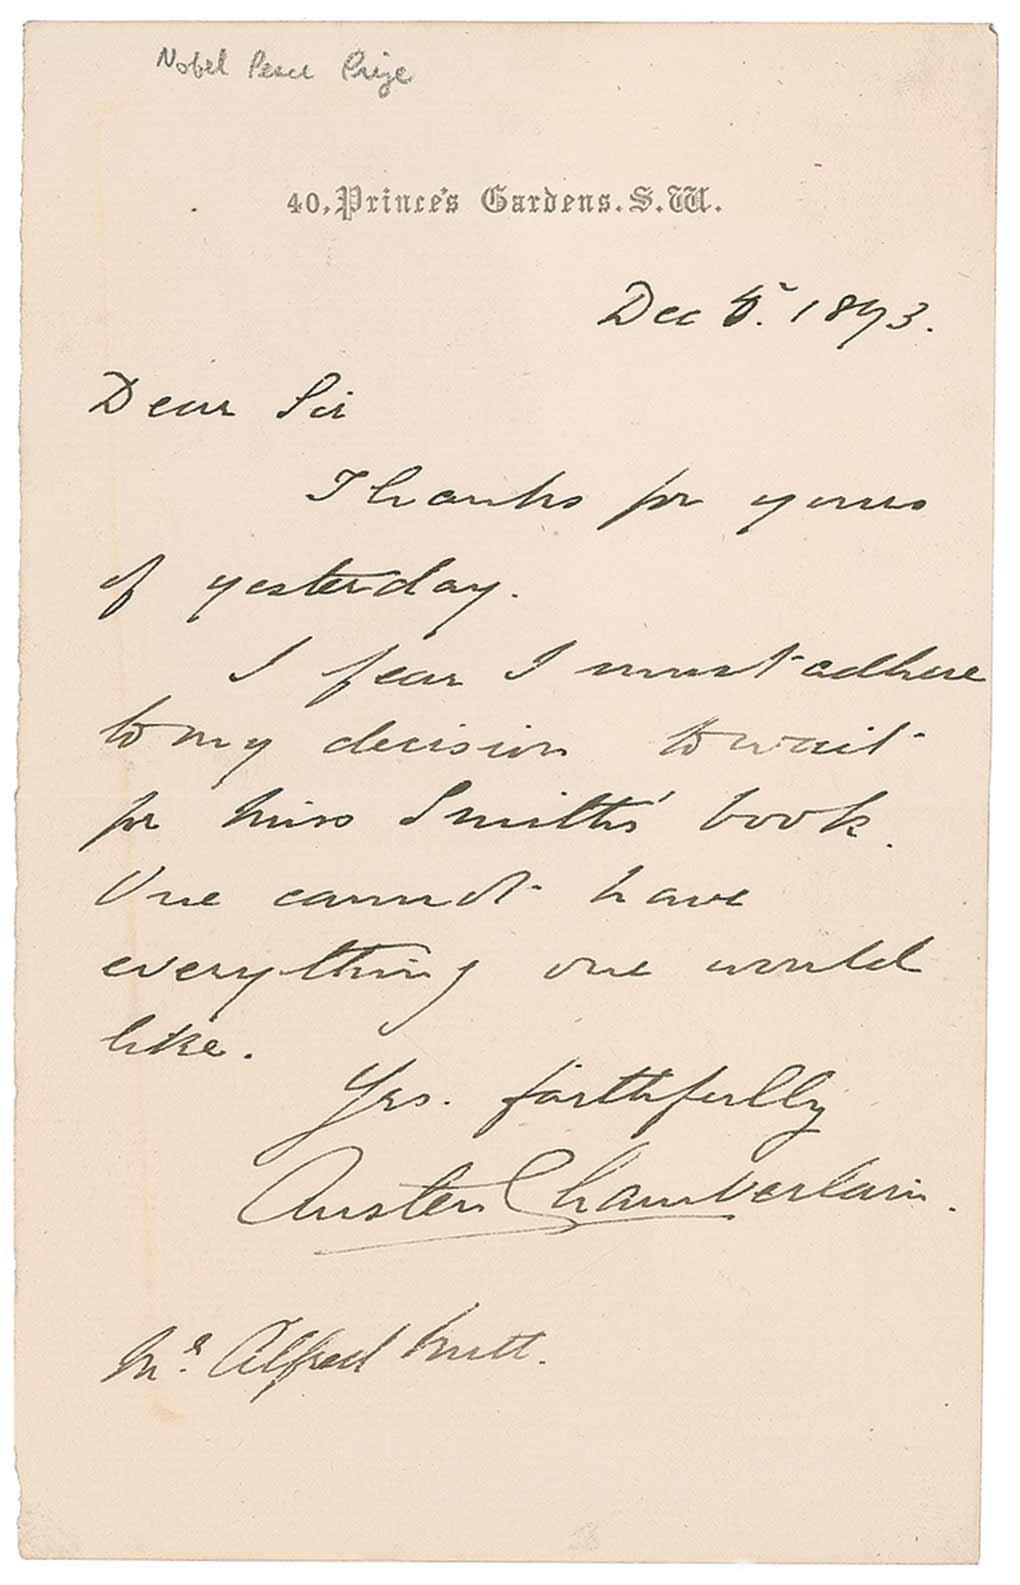 Nobel Peace Prize
40, Prince's Gardens. S.W.
Dec 1893.
Dear Sir
Thanks for yours
of yesterday.
I fear I must adhere
to my decision to wait
for Miss Smith's book.
One cannot have
everything one would
like.
Yrs. faithfully
Austen Chamberlain.
Mr. Alfred Nutt.